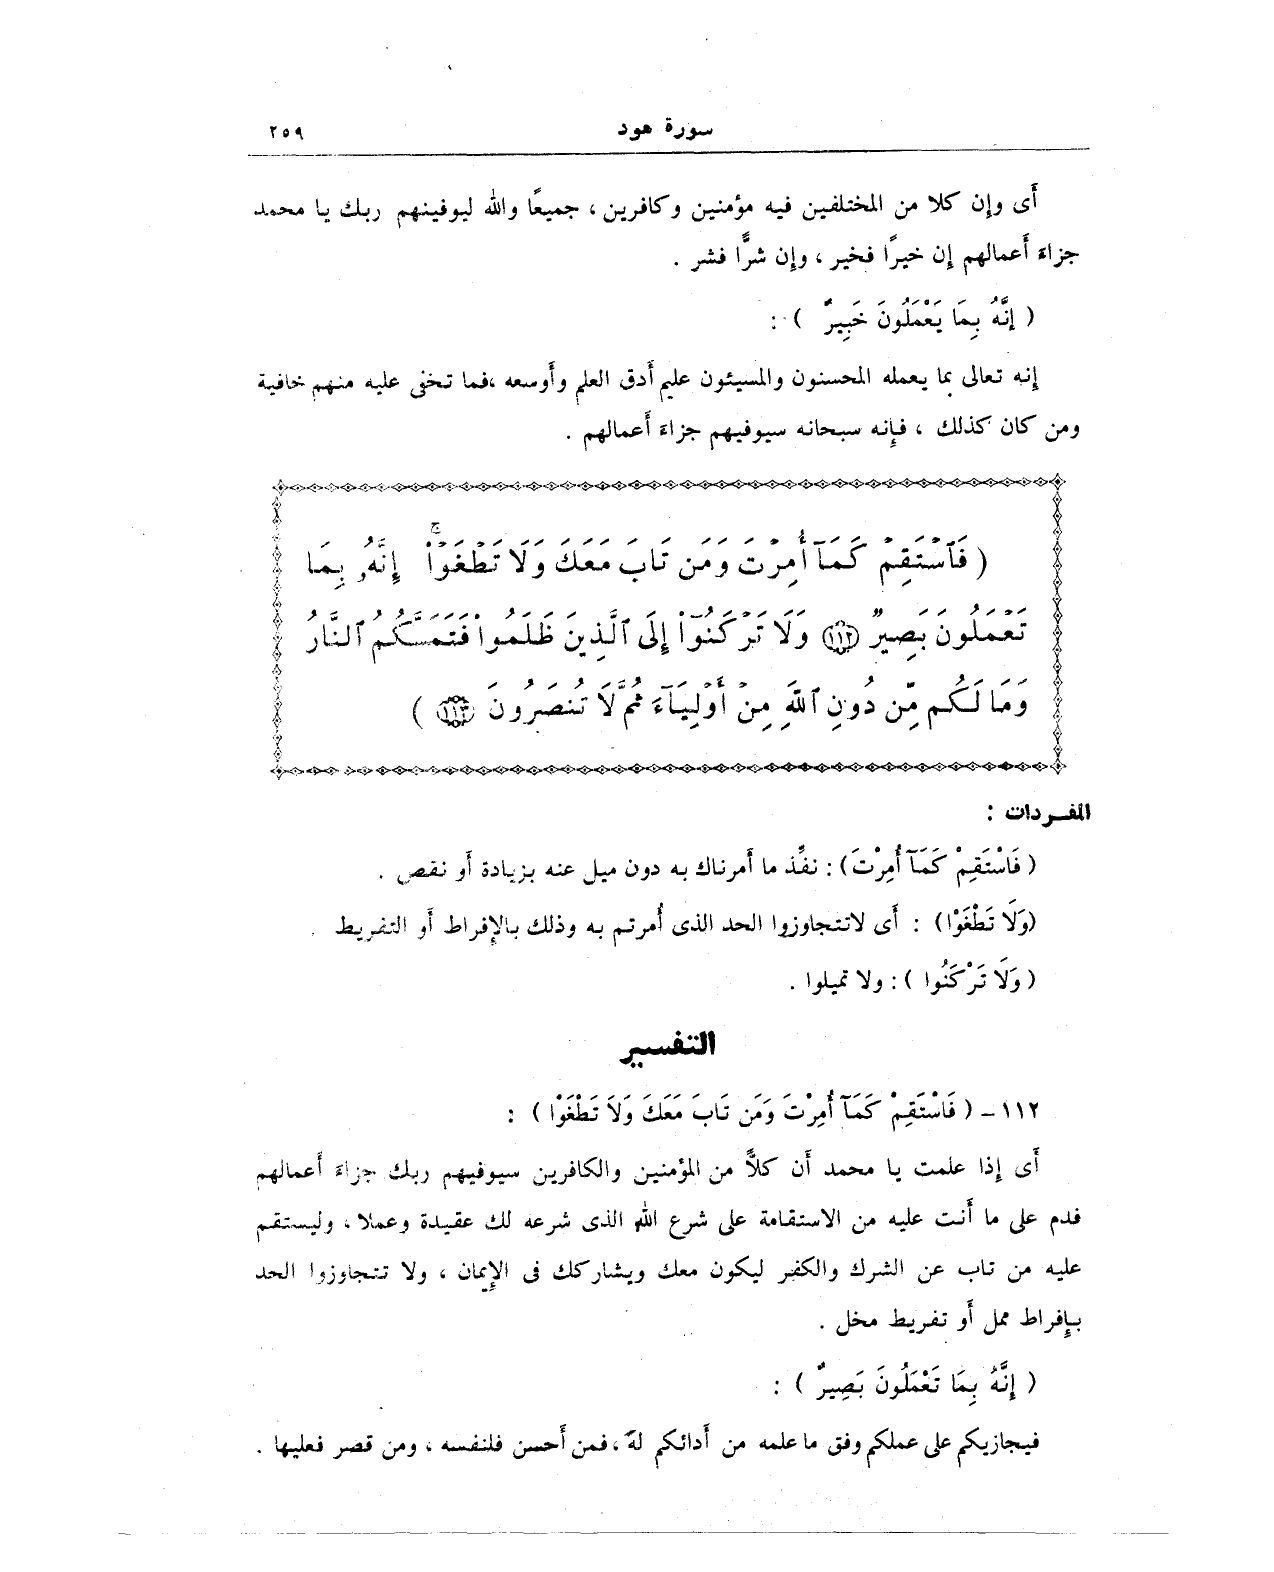 سورة هود ٢٥٩
أى وإن كلا من المختلفين فيه مؤمنين وكافرين ، جميعًا والله ليوفينهم ربك يا محمد
جزاءَ أعمالهم إن خيرًا فخير ، وإن شرًّا فشر .
( إِنَّهُ بِمَا يَعْمَلُونَ خَبِيرٌ ) :
إنه تعالى بما يعمله المحسنون والمسيئون عليم أدق العلم وأوسعه ،فما تخفى عليه منهم خافية
ومن كان كذلك ، فإنه سبحانه سيوفيهم جزاءَ أعمالهم .
( فَٱسْتَقِمْ كَمَآ أُمِرْتَ وَمَن تَابَ مَعَكَ وَلَا تَطْغَوْا۟ ۚ إِنَّهُۥ بِمَا
تَعْمَلُونَ بَصِيرٌ ١١٢ وَلَا تَرْكَنُوٓا۟ إِلَى ٱلَّذِينَ ظَلَمُوا۟ فَتَمَسَّكُمُ ٱلنَّارُ
وَمَا لَكُم مِّن دُونِ ٱللَّهِ مِنْ أَوْلِيَآءَ ثُمَّ لَا تُنصَرُونَ ١١٣ )
المفـردات :
( فَاسْتَقِمْ كَمَآ أُمِرْتَ) : نفِّذ ما أمرناك به دون ميل عنه بزيادة أو نقص .
(وَلَا تَطْغَوْا) : أى لاتتجاوزوا الحد الذى أُمرتم به وذلك بالإفراط أو التفريط .
( وَلَا تَرْكَنُوا ) : ولا تميلوا .
التفسير
١١٢ - ( فَاسْتَقِمْ كَمَآ أُمِرْتَ وَمَن تَابَ مَعَكَ وَلَا تَطْغَوْا ) :
أى إذا علمت يا محمد أن كلاًّ من المؤمنين والكافرين سيوفيهم ربك جزاءَ أعمالهم
فدم على ما أنت عليه من الاستقامة على شرع الله الذى شرعه لك عقيدة وعملا ، وليستقم
عليه من تاب عن الشرك والكفر ليكون معك ويشاركك فى الإيمان ، ولا تتجاوزوا الحد
بإفراط ممل أو تفريط مخل .
( إِنَّهُ بِمَا تَعْمَلُونَ بَصِيرٌ ) :
فيجازيكم على عملكم وفق ما علمه من أدائكم له ، فمن أحسن فلنفسه ، ومن قصر فعليها .